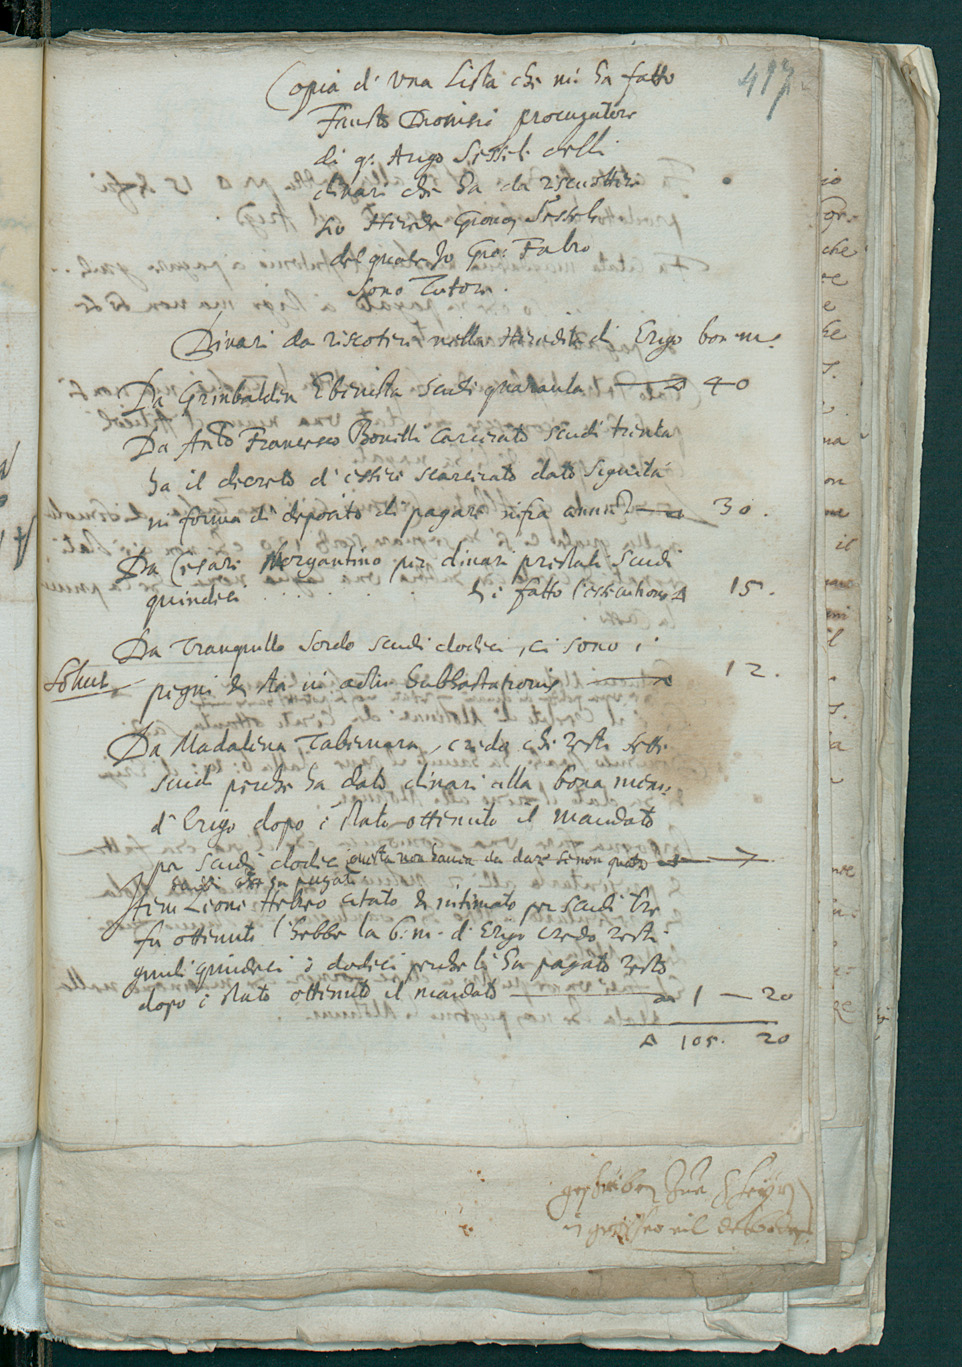 417
Copia d' una Lista che mi ha fatto
Fausto Dionisio procuratore
di q. Arigo Sessele delli
dinari che ha da riscuotter
lo Herede
del quale Io Gio: Fabro
sono Tutore.
Dinari da riscoter nella Heredità di Erigo bon: m:
Da Grinbaldin Ebenista scudi quaranta 40
Da Ant.o Francesco Bonelli Carcerato scudi trenta
ha il decreto d' essere scarcerato dato sigurta
in forma di deposito di pagare infra anni 2 30.
Da Cesare Morgantino per dinari prestati scudi
quindeci . . . . . si è fatto l'essecutione 15.
Da Tranquillo Sordo scudi dodeci, ci sono i
pegni et sta in actu subbastationis 12.
Da Madalena Tabernara, credo che resti sette
scudi perche ha dato dinari alla bona mem:
d' Erigo dopo è stato ottenuto il mandato
per scudi dodeci questa non haveva da dare se non quatro 7
Leone Hebreo citato et intimato per scudi tre
fu ottenuto l'hebbe la b: m: d' Erigo credo resti
giuli quindeci ò dodeci perche li ha pagato resto
dopo è stato ottenuto il mandato 1 — 20
105. 20